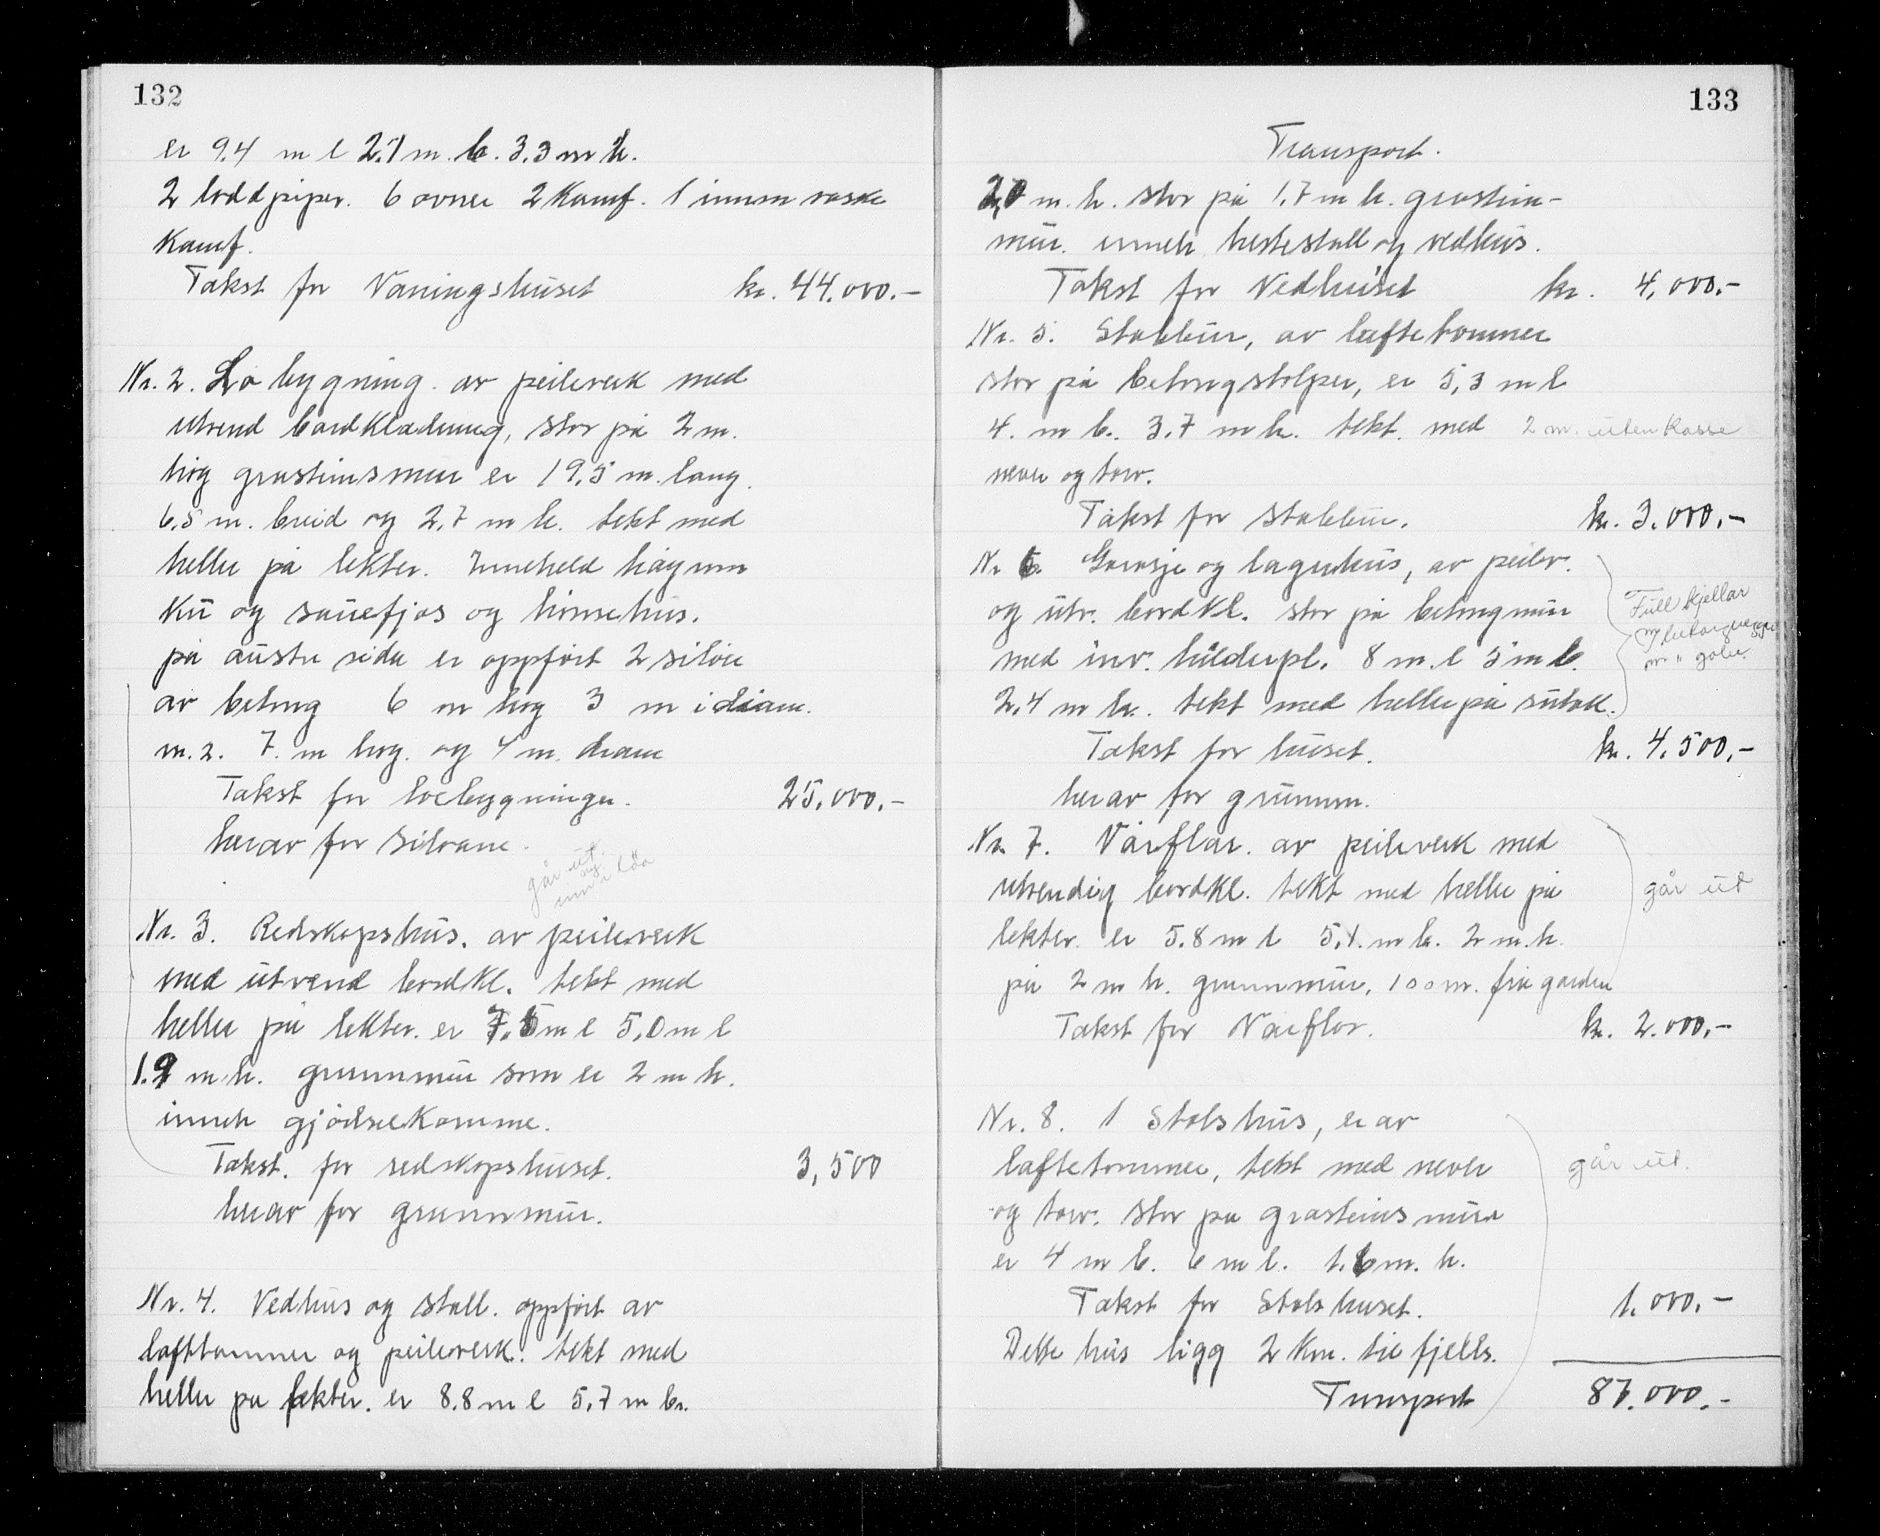 132
er 9.4 m l 2.7 m. b. 3.3 m h.
2 loddpiper. 6 ovner 2 Kamf. 1 innm vaske
Kamf.
Takst for Våningshuset kr. 44.000.-
Nr. 2. Lo bygning. av peileverk med
utvend bordklædning, stor på 2 m.
høg grasteinsmur er 19.5 m. lang.
6.5 m. breid og 2,7 m h. tekt med
heller på lekter. Inneheld høyrom
Ku og sauefjos og hønsehus.
på austre sida er oppført 2 siloer
av betong 6 m høg 3 m i diam.
nr. 2. 7. m høg. og 4 m. diam
Takst for loebygningen. 25.000.-
herav for siloane.
går ut.
inn i löa
Nr. 3. Redskapshus. av peileverk
med utvend bordkl. tekt med
heller på lekter. er 7.5 m l 5.0 m l
1.9 m. h. grunnmur som er 2 m h.
inneh gjødselkomme.
Takst. for redskapshuset. 3,500
herav for grunnmur.
Nr. 4. Vedhus og stall. oppført av
lafttømmer og peileverk. tekt med
heller på lekter. er 8.8 m l 5,7 m br.
133
Transport.
2,0 m. h. stor på 1,7 m h. grastein-
mur. inneh. hestestall og vedhus.
Takst for Vedhuset kr. 4,000.-
Nr. 5. Stabbur, av laftetømmer
stor på betongstolper, er 5,3 m l
4. m b. 3.7 m h. tekt. med 2 m. uten Kasse
never og torv.
Takst for stabbur. kr. 3.000.-
Nr 6. Garasje og lagerhus, av peilev.
og utv. bordkl. stor på betongmur
med inv. hulderpl. 8 m. l 5 m b.
2,4 m h. tekt med heller på sutak.
Full kjellar
m/ betongvegger
og " golv.
Takst for huset. kr. 4,500.-
herav for grunnm.
Nr. 7. Vårflor. av peileverk med
utvendig bordkl. tekt med heller på
går ut
lekter. er 5.8 m l 5,1. m b. 2 m. h.
på 2 m h. grunnmur, 100 m. frå garden
Takst for Vårflor. kr. 2.000.-
Nr. 8. 1 Stølshus, er av
laftetømmer, tekt med never
går ut.
og torv. stor på grasteinsmur
er 4 m b. 6 m l. 1.6 m. h.
Takst for Stølshuset. 1.000.-
Dette hus ligg 2 Km. til fjells.
Transport 87.000.-